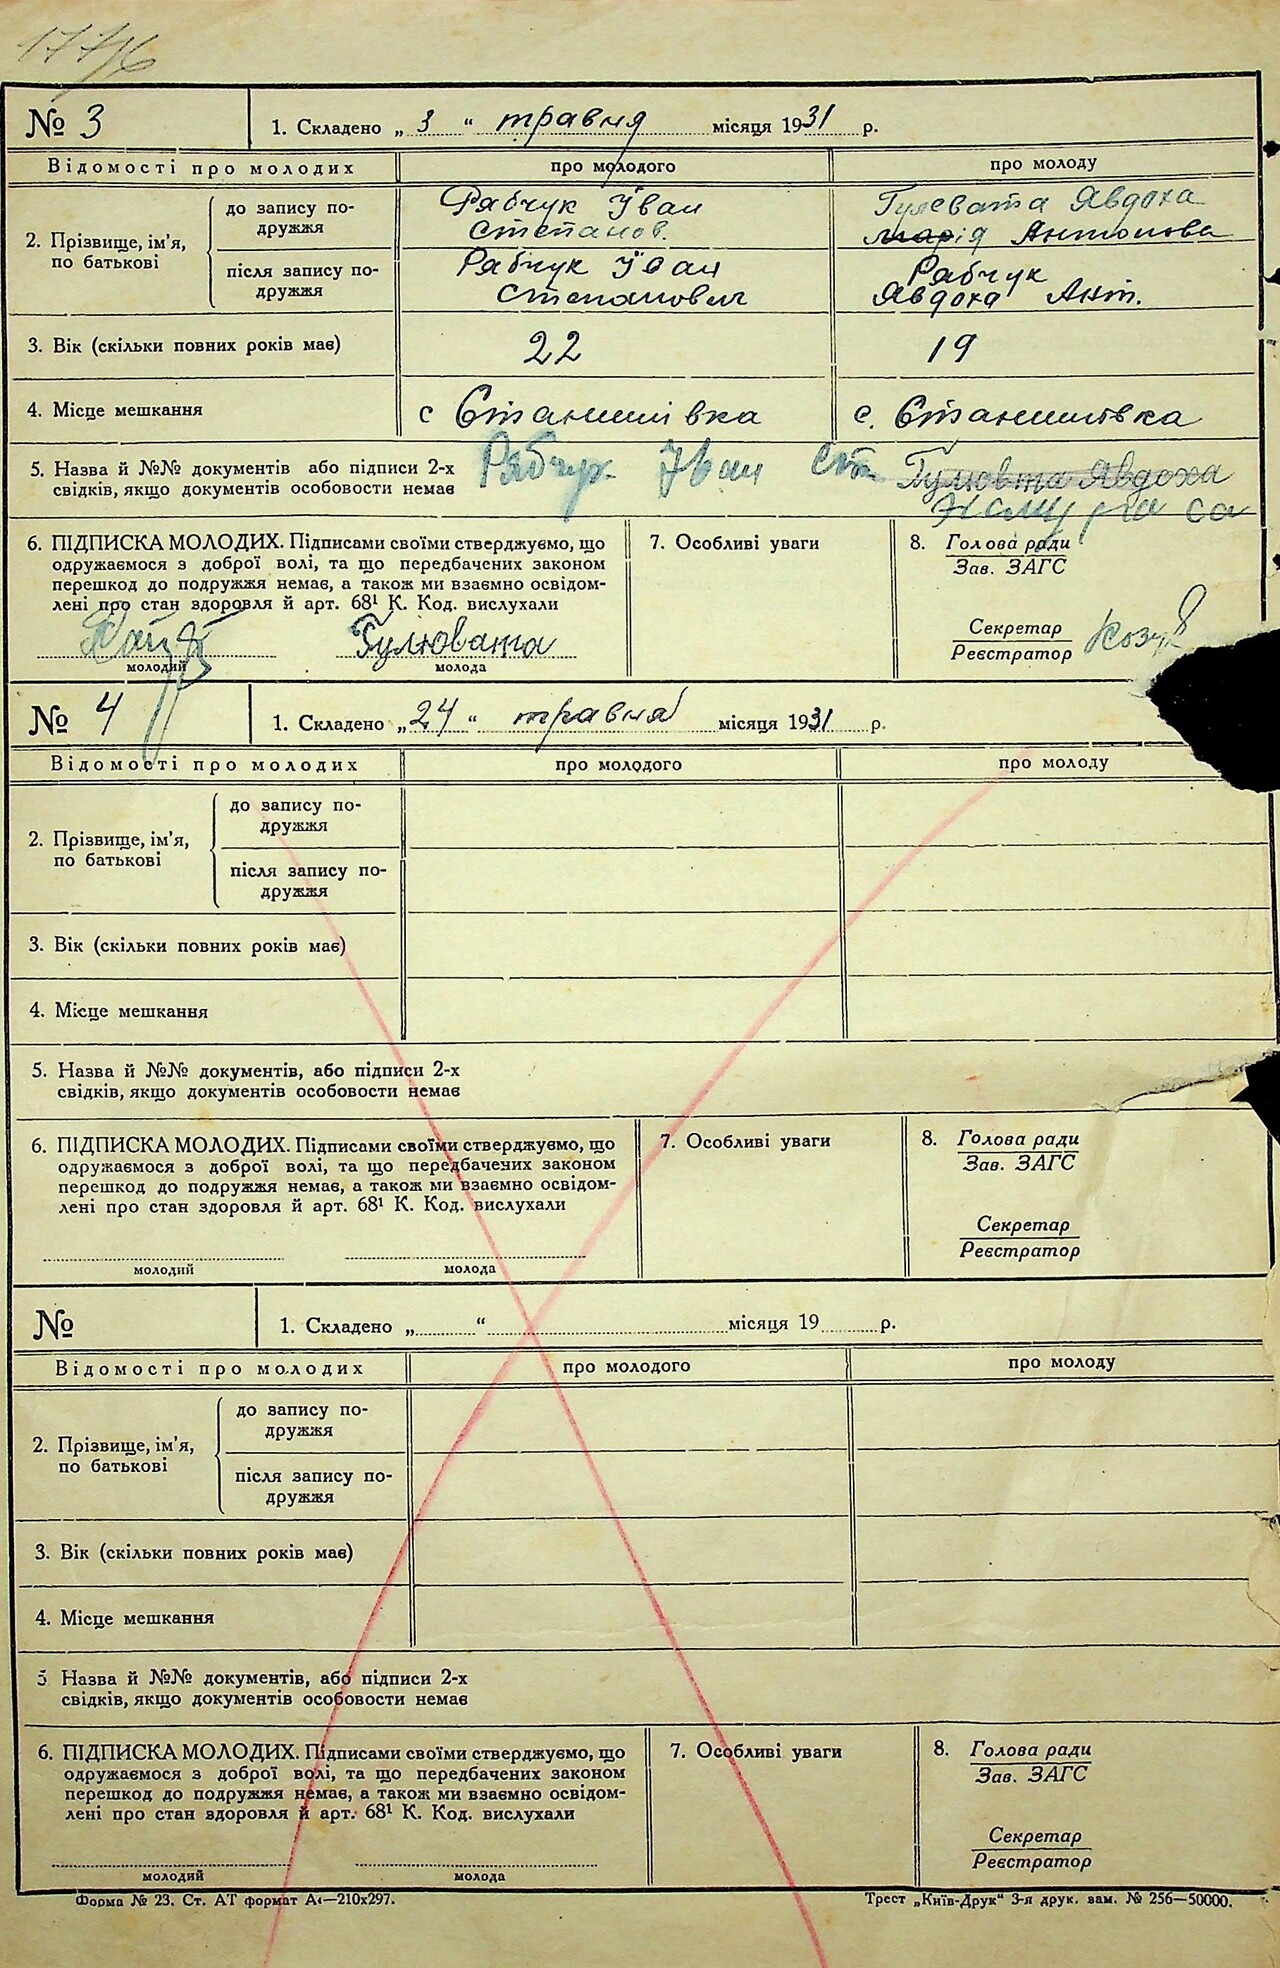 177/6
№ 3
1. Складено „ 3 “ травня місяця 1931 р.
Відомості про молодих про молодого про молоду
2. Прізвище, ім’я, по батькові
до запису подружжя
Рябчук Іван
Степанов.
Гулевата Явдоха
Марія Антонова
після запису подружжя
Рябчук Іван
Степанович
Рябчук
Явдоха Ант.
3. Вік (скільки повних років має) 22 19
4. Місце мешкання с Станишівка с. Станишівка
5. Назва й №№ документів або підписи 2-х
свідків, якщо документів особовости немає
Рябчук Іван Ст. Гулювата Явдоха
6. ПІДПИСКА МОЛОДИХ. Підписами своїми стверджуємо, що
одружаємося з доброї волі, та що передбачених законом
перешкод до подружжя немає, а також ми взаємно освідом-
лені про стан здоровля й арт. 68¹ К. Код. вислухали
Гулювата
молодий молода
7. Особливі уваги
8. Голова ради
Зав. ЗАГС
Секретар
Реєстратор
№ 4
1. Складено „ 24 “ травня місяця 1931 р.
Відомості про молодих про молодого про молоду
2. Прізвище, ім’я,
по батькові
до запису по-
дружжя
після запису по-
дружжя
3. Вік (скільки повних років має)
4. Місце мешкання
5. Назва й №№ документів, або підписи 2-х
свідків, якщо документів особовости немає
6. ПІДПИСКА МОЛОДИХ. Підписами своїми стверджуємо, що
одружаємося з доброї волі, та що передбачених законом
перешкод до подружжя немає, а також ми взаємно освідом-
лені про стан здоровля й арт. 68¹ К. Код. вислухали
молодий молода
7. Особливі уваги
8. Голова ради
Зав. ЗАГС
Секретар
Реєстратор
№
1. Складено „ “ місяця 19 р.
Відомості про молодих про молодого про молоду
2. Прізвище, ім’я,
по батькові
до запису по-
дружжя
після запису по-
дружжя
3. Вік (скільки повних років має)
4. Місце мешкання
5 Назва й №№ документів, або підписи 2-х
свідків, якщо документів особовости немає
6. ПІДПИСКА МОЛОДИХ. Підписами своїми стверджуємо, що
одружаємося з доброї волі, та що передбачених законом
перешкод до подружжя немає, а також ми взаємно освідом-
лені про стан здоровля й арт. 68¹ К. Код. вислухали
молодий молода
7. Особливі уваги
8. Голова ради
Зав. ЗАГС
Секретар
Реєстратор
Форма № 23. Ст. АТ формат А₄—210х297. Трест „Київ-Друк“ 3-я друк. зам. № 256—50000.